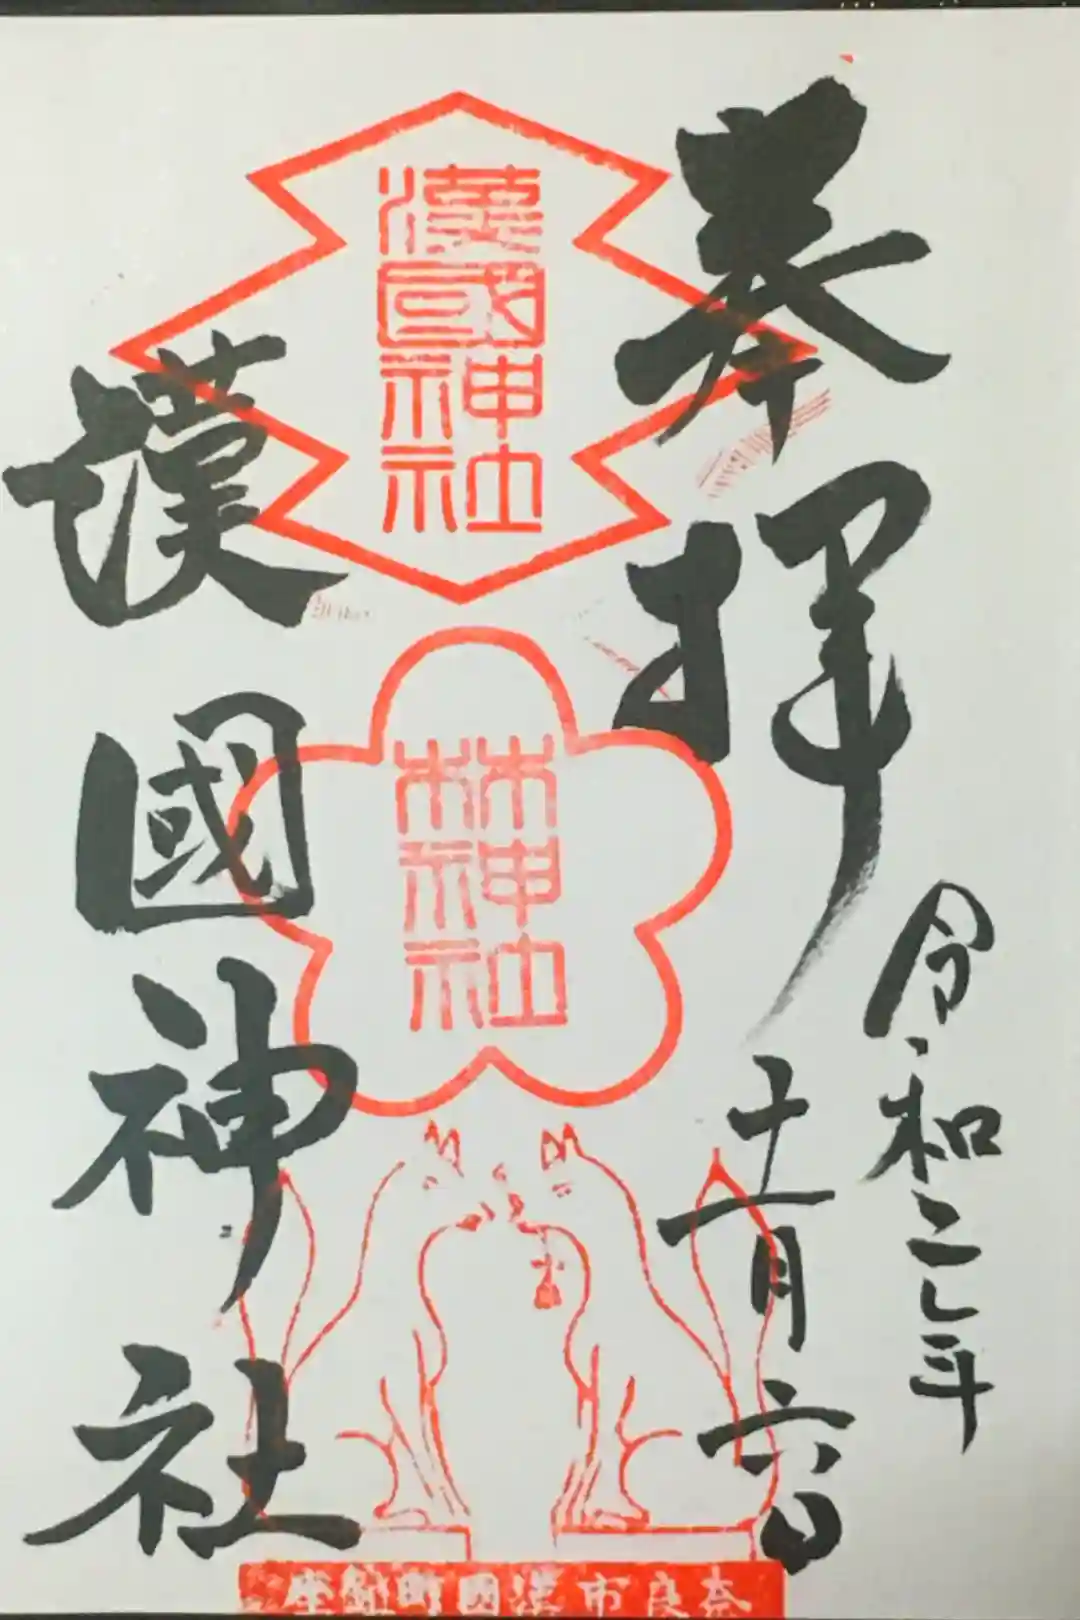 奉拝
令和二年
十一月六日
漢國神社
林神社
漢國神社
奈良市漢国町鎮座